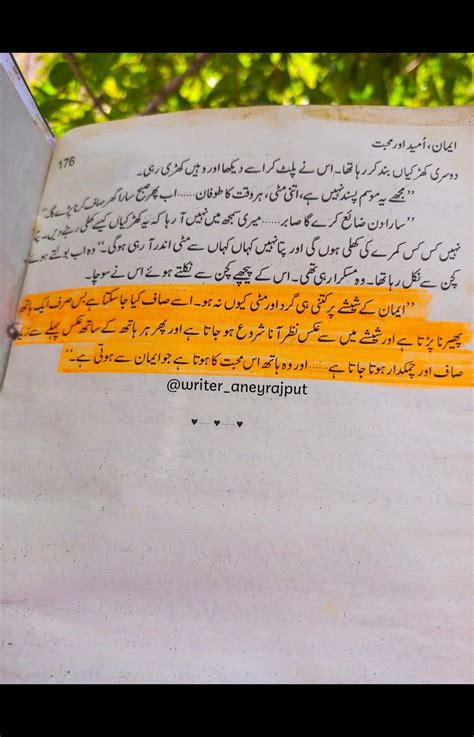 ایمان، اُمید اور محبت
176
دوسری کھڑکیاں بند کر رہا تھا۔ اس نے پلٹ کر اسے دیکھا اور وہیں کھڑی رہی۔
”مجھے یہ موسم پسند نہیں ہے، اتنی مٹی، ہر وقت کا طوفان...... اب پھر صبح سارا گھر صاف کرنا پڑے گا۔“
”سارا دن ضائع کرے گا صابر...... میری سمجھ میں نہیں آ رہا کہ یہ کھڑکیاں کیسے کھلی رہنے دیں۔ پتا
نہیں کس کس کمرے کی کھلی ہوں گی اور پتا نہیں کہاں کہاں سے مٹی اندر آ رہی ہو گی۔“ وہ اب بولتے ہوئے
کچن سے نکل رہا تھا۔ وہ مسکرا رہی تھی۔ اس کے پیچھے کچن سے نکلتے ہوئے اس نے سوچا۔
”ایمان کے شیشے پر کتنی ہی گرد اور مٹی کیوں نہ ہو۔ اسے صاف کیا جا سکتا ہے بس صرف ایک ہاتھ
پھیرنا پڑتا ہے اور شیشے میں سے عکس نظر آنا شروع ہو جاتا ہے اور پھر ہر ہاتھ کے ساتھ عکس پہلے سے زیادہ
صاف اور چمکدار ہوتا جاتا ہے...... اور وہ ہاتھ اس محبت کا ہوتا ہے جو ایمان سے ہوتی ہے۔“
@writer_aneyrajput
♥......♥......♥